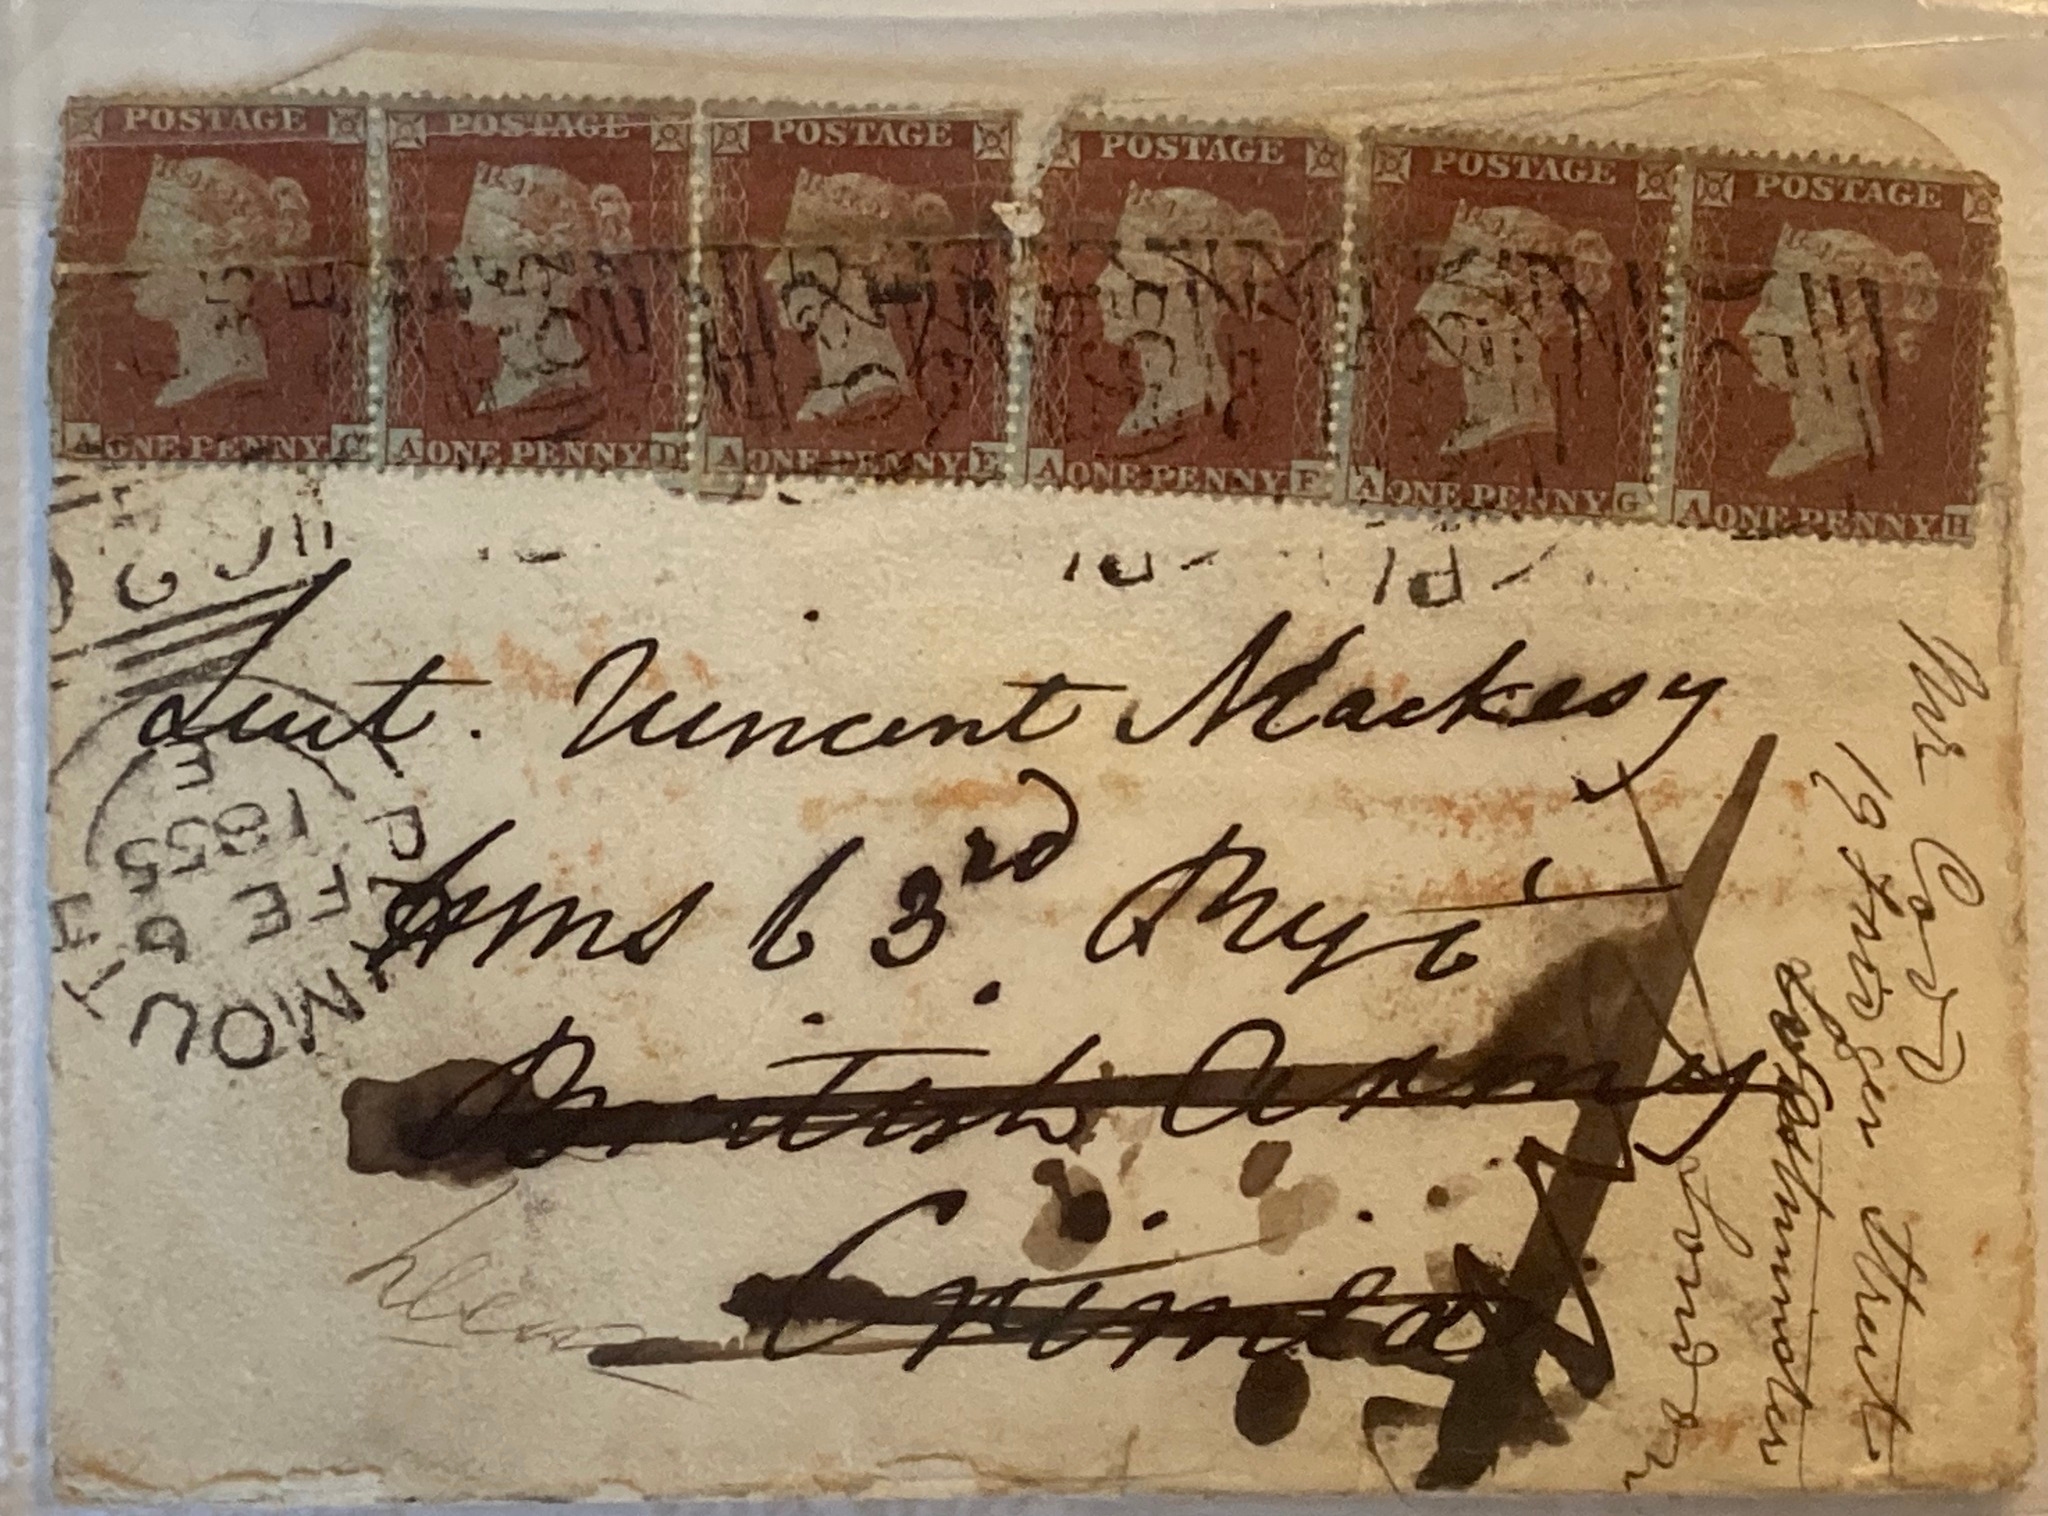 POSTAGE POSTAGE POSTAGE POSTAGE POSTAGE POSTAGE
A ONE PENNY. C A ONE PENNY. D A ONE PENNY. E A ONE PENNY. F A ONE PENNY. G A ONE PENNY. H
Lieut. Vincent Mackesy
HMS 63rd Regt
British Army
Crimea
PLYMOUTH
FE 6
1855
E
19
Street
Westminster
London